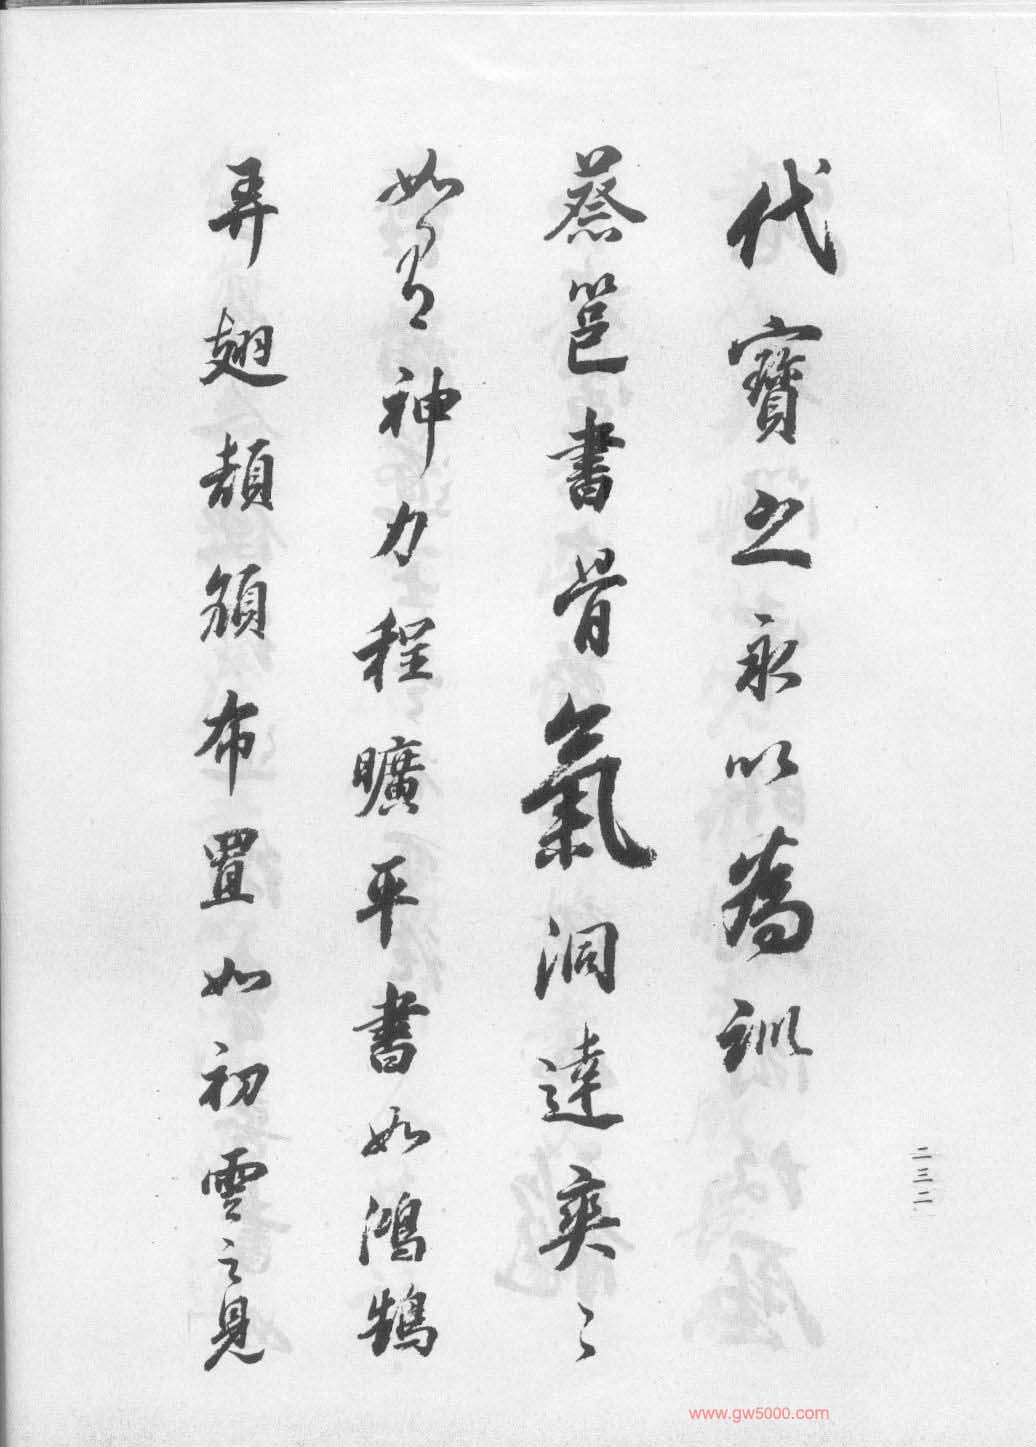 代寶之永以為訓
蔡邕書骨氣洞達爽〻
如有神力程曠平書如鴻鵠
弄翅頡頏布置如初雲之見
二三二
www.gw5000.com